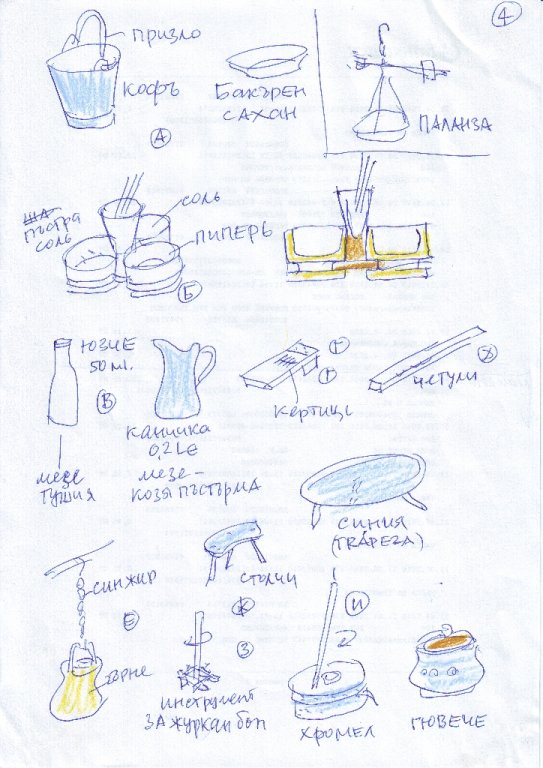 4
ПРИЗЛО
КОФЪ
А
БАКЪРЕН
САХАН
ПАЛАНЗА
ША
ПЪСТРА
СОЛЬ
СОЛЬ
ПИПЕРЬ
Б
ЮЗЧЕ
50 ml.
В
МЕЗЕ
ТУШИЯ
КАНИЧКА
0,2 Le
МЕЗЕ –
КОЗЯ ПЪСТЪРМА
Г
КЕРТИЦИ
Д
ЧЕТУЛИ
СИНИЯ
(TRÁPEZA)
СИНЖИР
Е
ГЪРНЕ
СТОЛЧИ
К
З
ИНСТРУМЕНТ
ЗА ЖУРКАН БОП
И
ХРОМЕЛ
ГЮВЕЧЕ